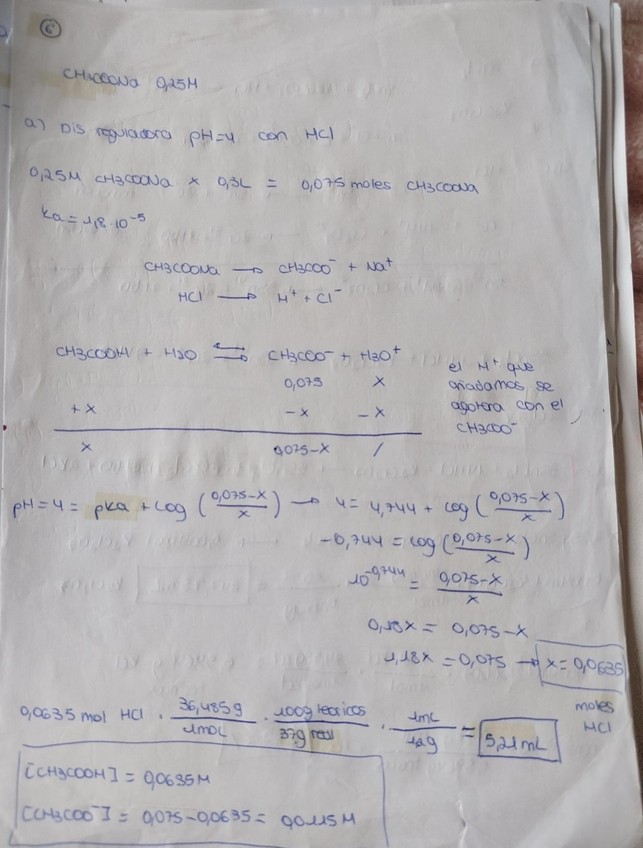 6
CH3COONa 0,25M
a) Dis reguladora pH=4 con HCl
0,25M CH3COONa x 0,3L = 0,075 moles CH3COONa
Ka = 1,8·10⁻⁵
CH3COONa → CH3COO⁻ + Na⁺
HCl → H⁺ + Cl⁻
CH3COOH + H2O ⇌ CH3COO⁻ + H3O⁺
0,075 x
+x -x -x
x 0,075-x /
el H⁺ que
añadamos se
agotara con el
CH3COO⁻
pH=4 = pKa + log (0,075-x/x) → 4 = 4,744 + log (0,075-x/x)
-0,744 = log (0,075-x/x)
10⁻⁰'⁷⁴⁴ = 0,075-x/x
0,18x = 0,075-x
1,18x = 0,075 → x = 0,0635
moles
HCl
0,0635 mol HCl · 36,485g/1mol · 100g teóricos/37g real · 1mL/1,2g = 5,21 mL
[CH3COOH] = 0,0635M
[CH3COO⁻] = 0,075-0,0635 = 0,0115M